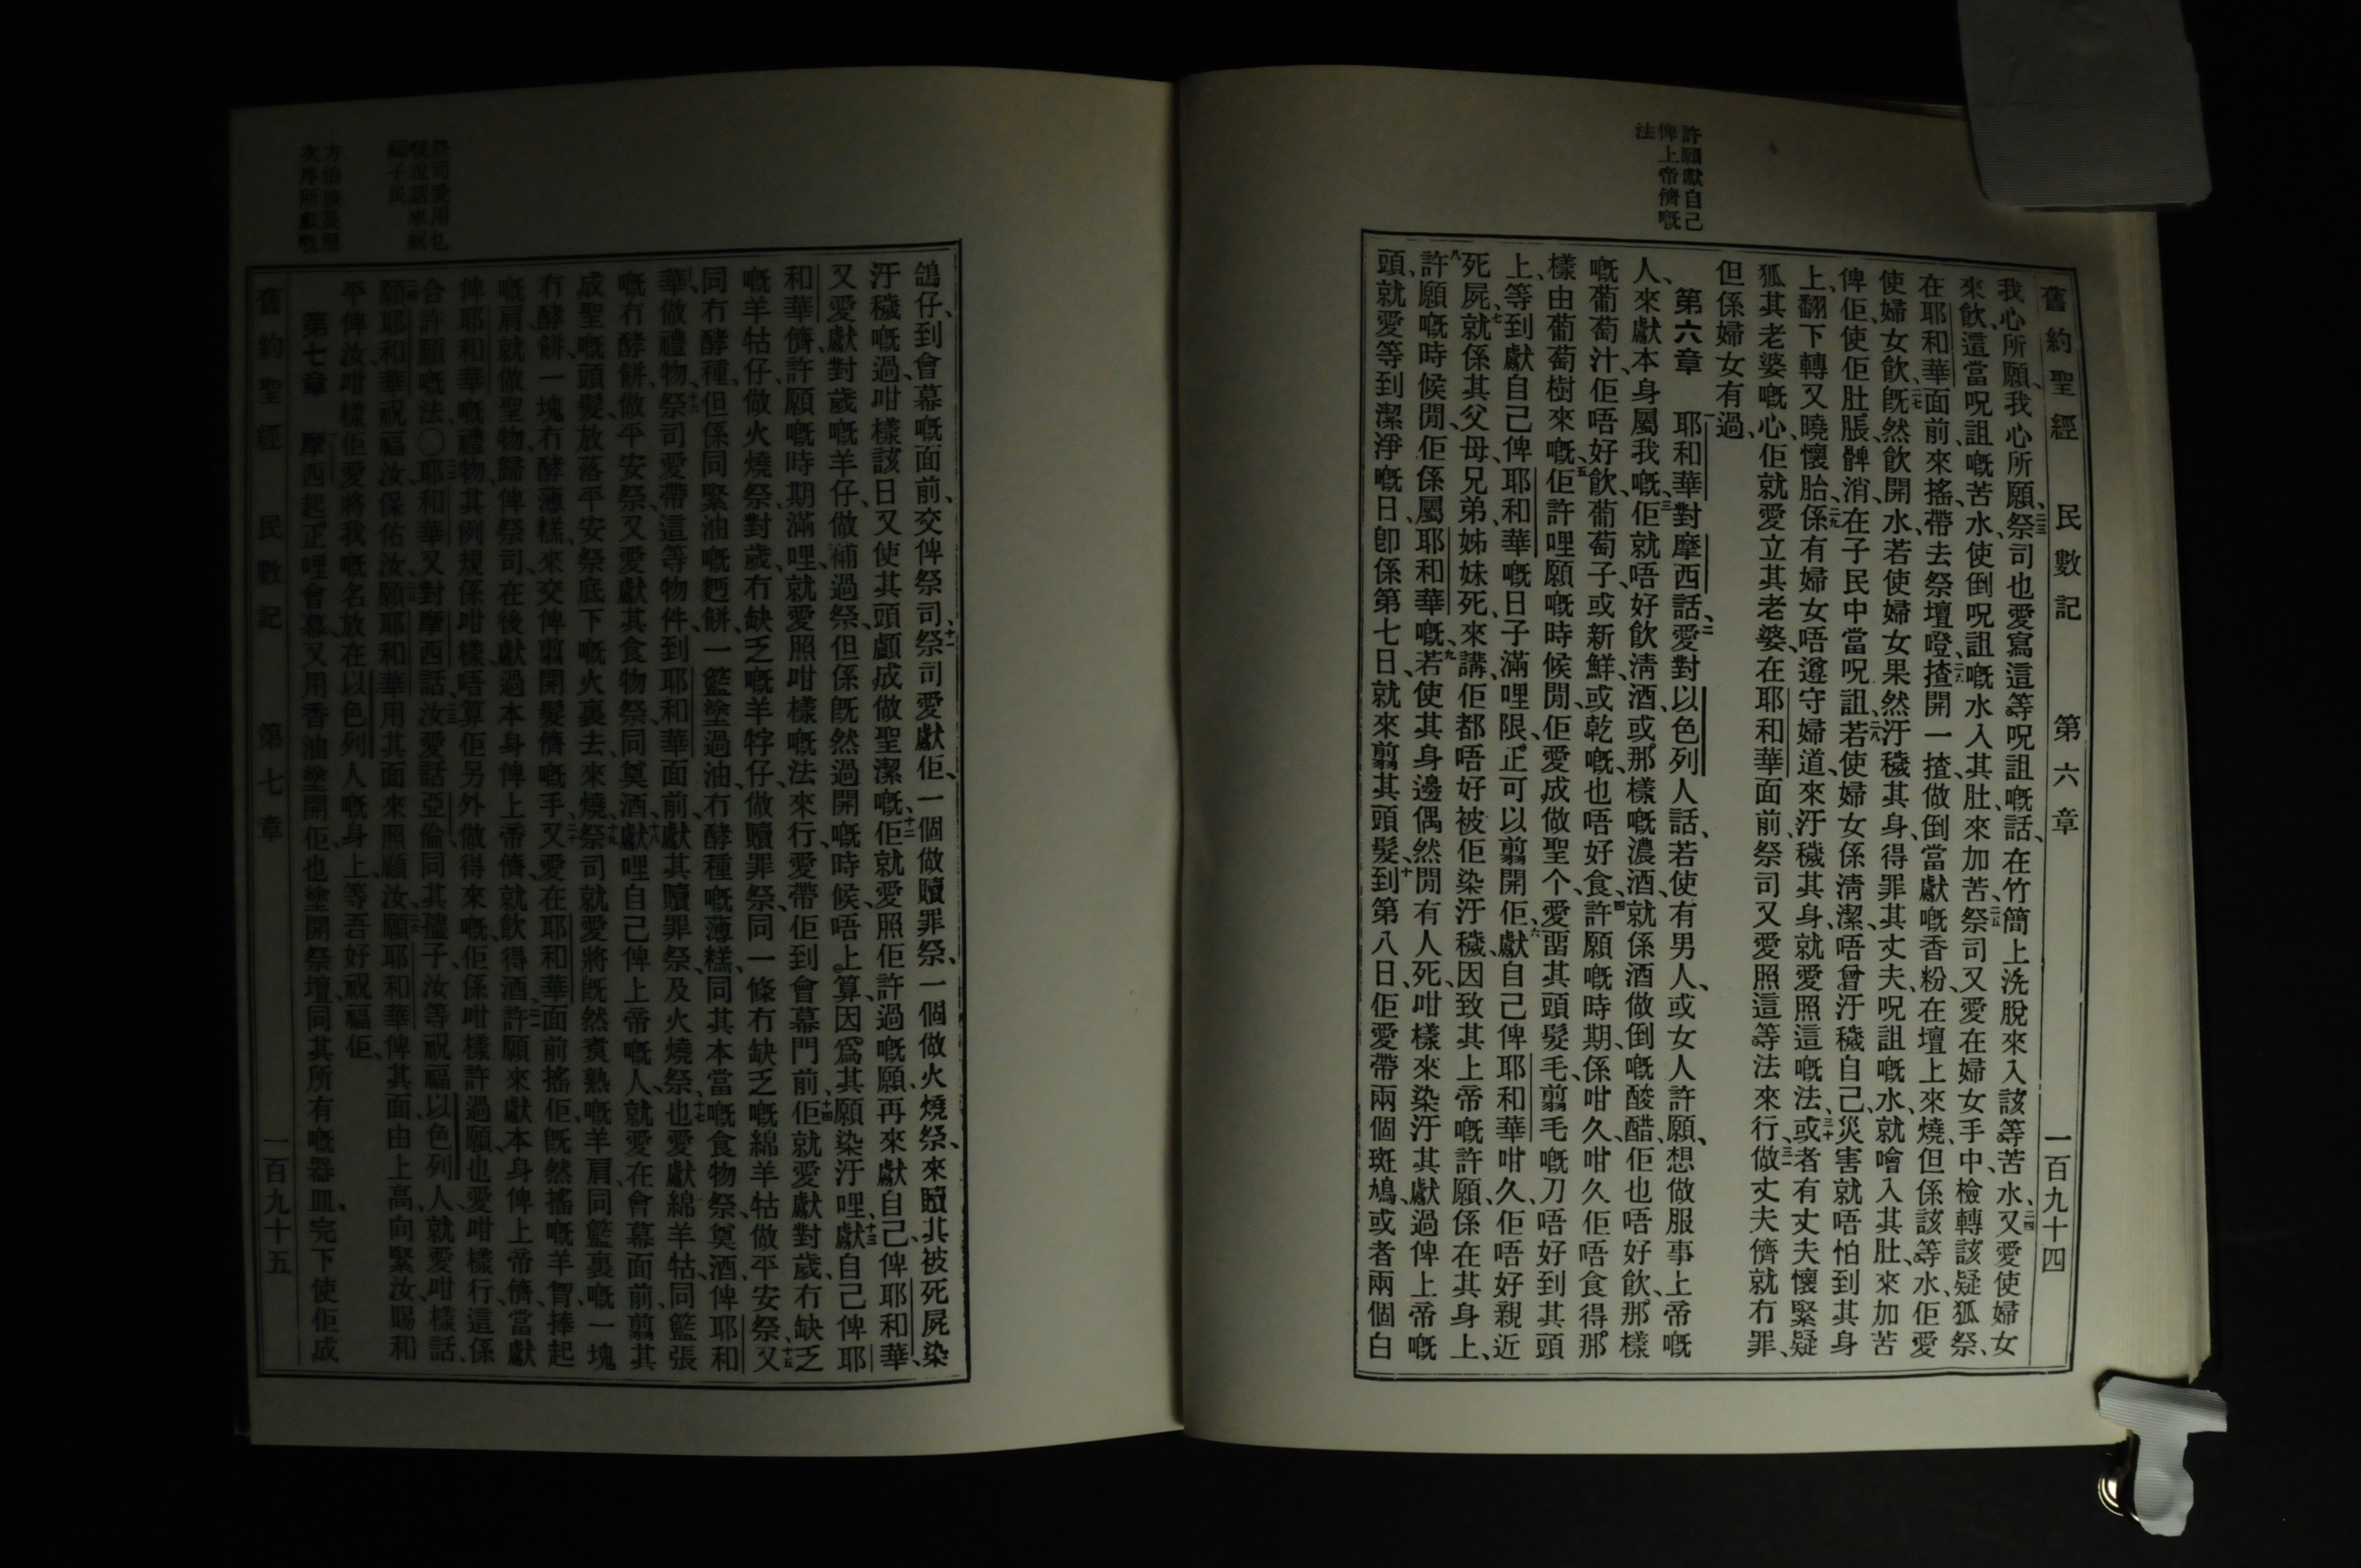 舊約聖經 民數記 第六章 一百九十四
許願獻自己
俾上帝儕嘅
法
我心所願、我心所願、二三祭司也愛寫這等呪詛嘅話、在竹簡上洗脫來入該等苦水、二四又愛使婦女
來飲這當呪詛嘅苦水、使倒呪詛嘅水入其肚、來加苦、二五祭司又愛在婦女手中、檢轉該疑狐祭、
在耶和華面前、來搖、帶去祭壇嶝、二六揸開一揸、做倒當獻嘅香粉、在壇上來燒、但係該等水、佢愛
使婦女飲、二七旣然飲開水、若使婦女果然汙穢其身、得罪其丈夫、呪詛嘅水、就噲入其肚、來加苦
俾佢、使佢肚脹、髀消、在子民中當呪詛、二八若使婦女係淸潔、唔曾汙穢自己、災害就唔怕到其身
上、翻下轉又曉懷胎、二九係有婦女唔遵守婦道、來汙穢其身、就愛照這嘅法、三十或者有丈夫懷緊疑
狐其老婆嘅心、佢就愛立其老婆、在耶和華面前、祭司又愛照這等法來行、三一做丈夫儕就冇罪、
但係婦女有過、
第六章 一耶和華對摩西話、二愛對以色列人話、若使有男人、或女人許願、想做服事上帝嘅
人、來獻本身屬我嘅、三佢就唔好飮淸酒、或那樣嘅濃酒、就係酒做倒嘅酸醋、佢也唔好飮、那樣
嘅葡萄汁、佢唔好飮、葡萄子、或新鮮、或乾嘅、也唔好食、四許願嘅時期、係咁久、咁久佢唔食得那
樣由葡萄樹來嘅、五佢許哩願嘅時候閒、佢愛成做聖个、愛畱其頭髮毛、翦毛嘅刀唔好到其頭
上、等到獻自己俾耶和華嘅日子滿哩限、正可以翦開佢、六獻自己俾耶和華咁久、佢唔好親近
死屍、七就係其父母、兄弟、姊妹死、來講、佢都唔好被佢染汙穢、因致其上帝嘅許願、係在其身上、
八許願嘅時候閒、佢係屬耶和華嘅、九若使其身邊偶然閒有人死、咁樣來染汙其獻過俾上帝嘅
頭、就愛等到潔淨嘅日、卽係第七日、就來翦其頭髮、十到第八日、佢愛帶兩個斑鳩、或者兩個白
鴿仔、到會幕嘅面前、交俾祭司、十一祭司愛獻佢、一個做贖罪祭、一個做火燒祭、來贖其被死屍染
汙穢嘅過、咁樣該日又使其頭顱成做聖潔嘅、十二佢就愛照佢許過嘅願、再來獻自己俾耶和華、
又愛獻對歲嘅羊仔、做補過祭、但係旣然過開嘅時候、唔上算、因爲其願染汙哩、十三獻自己俾耶
和華儕、許願嘅時期滿哩、就愛照咁樣嘅法來行、愛帶佢到會幕門前、十四佢就愛獻對歲、冇缺乏
嘅羊牯仔、做火燒祭、對歲、冇缺乏嘅羊牸仔、做贖罪祭、同一條冇缺乏嘅綿羊牯做平安祭、十五又
同冇酵種、但係同緊油嘅麪餅、一籃塗過油、冇酵種嘅薄糕、同其本當嘅食物祭、奠酒、俾耶和
華做禮物、十六祭司愛帶這等物件、到耶和華面前、獻其贖罪祭、及火燒祭、十七也愛獻綿羊牯、同籃張
嘅冇酵餅、做平安祭、又愛獻其食物祭、同奠酒、十八獻哩自己俾上帝嘅人、就愛在會幕面前、翦其
成聖嘅頭髮、放落平安祭底下嘅火裏去、來燒、十九祭司就愛將旣然煑熟嘅羊肩、同籃裏嘅一塊
冇酵餅、一塊冇酵薄糕、來交俾翦開髮儕嘅手、二十又愛在耶和華面前搖佢、旣然搖嘅羊胷、捧起
嘅肩、就做聖物、歸俾祭司、在後獻過本身俾上帝儕、就飮得酒、二一許願來獻本身俾上帝儕、當獻
俾耶和華嘅禮物、其例規係咁樣、唔算佢另外做得來嘅、佢係咁樣許過願、也愛咁樣行、這係
合許願嘅法、〇二二耶和華又對摩西話、二三汝愛話亞倫、同其㜽子、汝等祝福以色列人、就愛咁樣話、
二四願耶和華祝福汝、保佑汝、二五願耶和華用其面來照顧汝、二六願耶和華俾其面、由上高向緊汝、賜和
平俾汝、二七咁樣佢愛將我嘅名放在以色列人嘅身上、等吾好祝福佢、
第七章 一摩西起正哩會幕、又用香油塗開佢、也塗開祭壇、同其所有嘅器皿、完下使佢成
祭司愛用乜
嘅說話來祝
福子民
方伯族長照
次序所獻嘅
舊約聖經 民數記 第七章 一百九十五